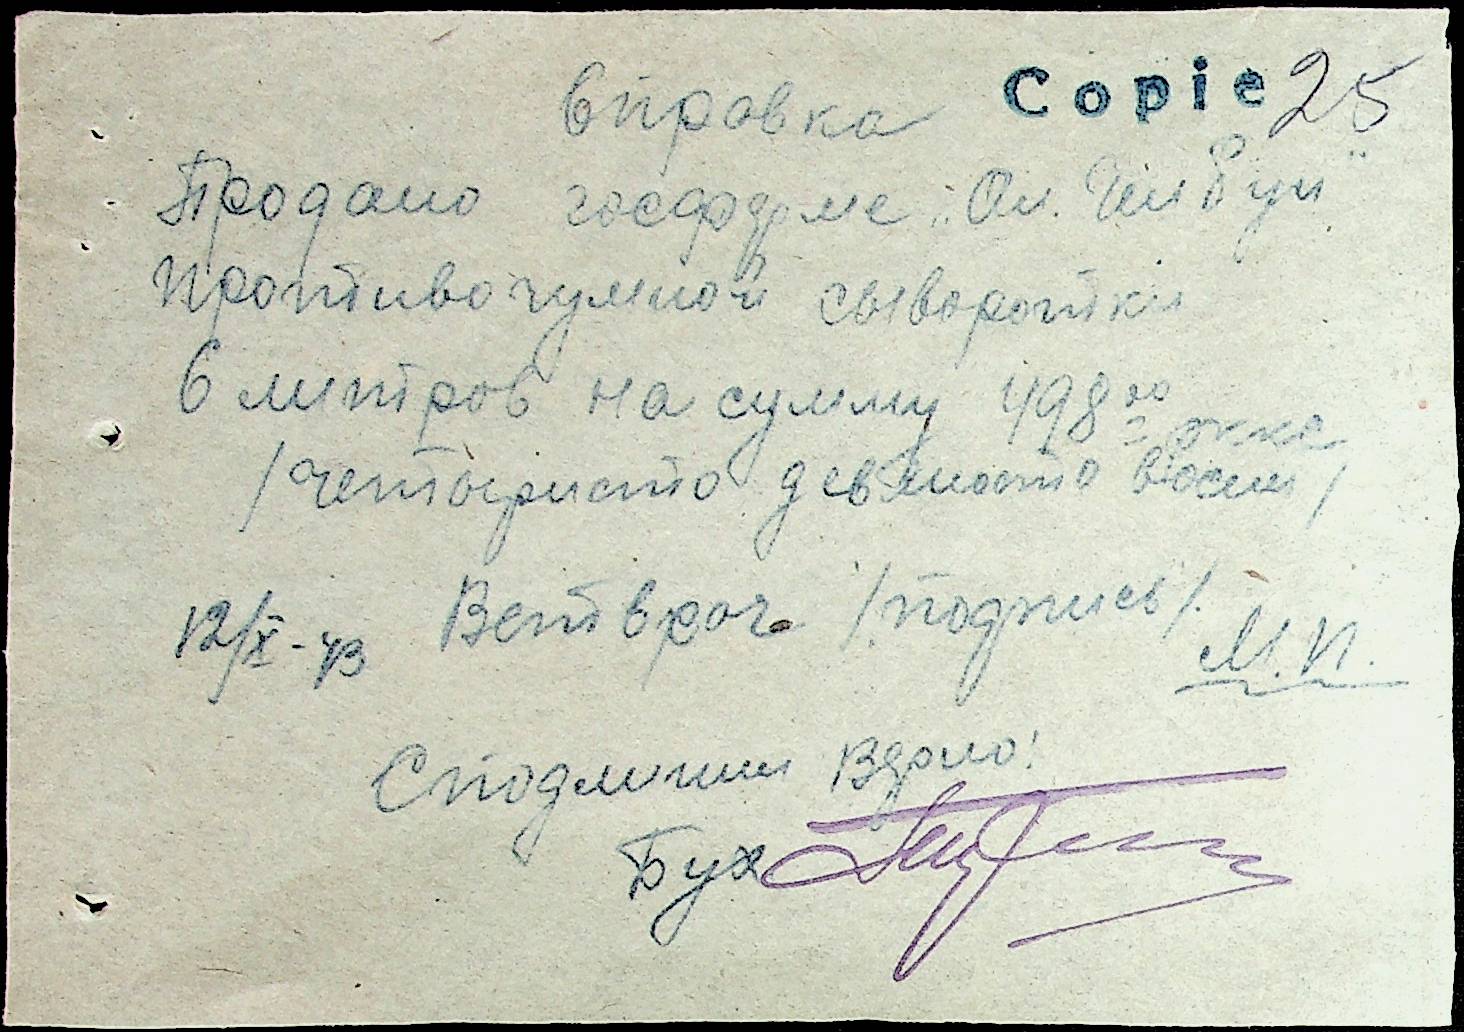 Справка Copie 25
Продано госферме „Ол.
Противочумной сыворотки
6 литров на сумму 498 00
/четыриста девяносто восем/
12/X-43 Ветврач /подпись/.
М.П.
Сподлиним вдрно!
Бух